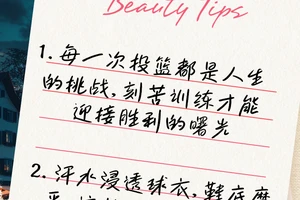 Beauty Tips
1. 每一次投篮都是人生
的挑战,刻苦训练才能
迎接胜利的曙光
2. 汗水浸透球衣,鞋底磨